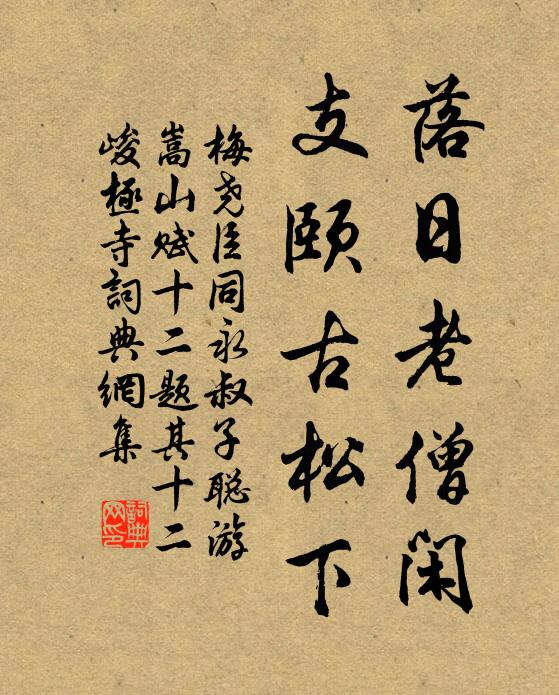 落日老僧閑
支頤古松下
梅尧臣同永叔子聪游
嵩山赋十二题其十二
峻極寺詞典網集
詞典
网印